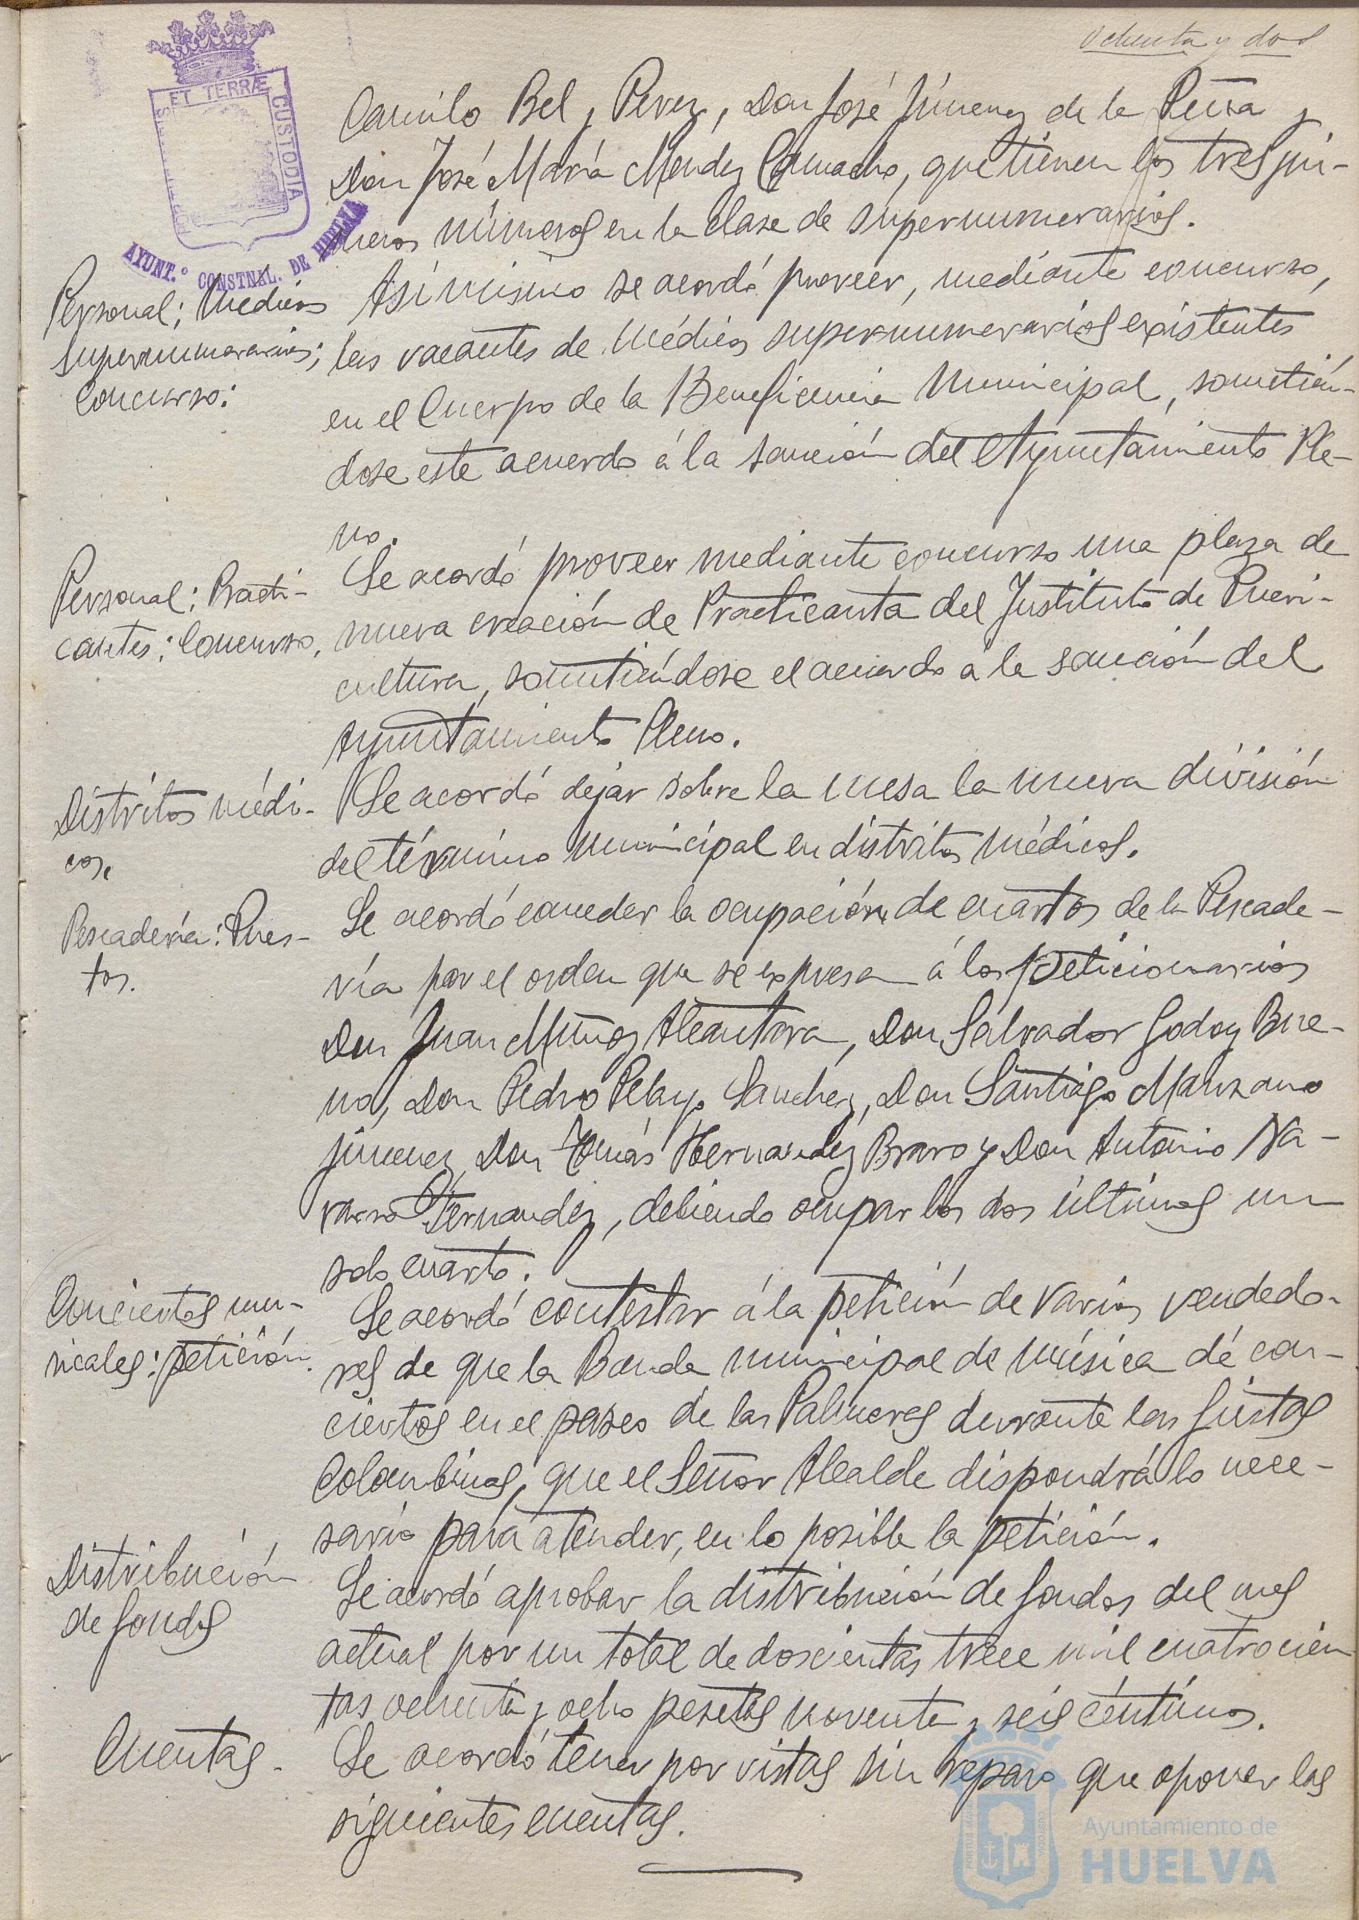 ochenta y dos
ET TERRÆ CUSTODIA
AYUNT.º CONSTNAL. DE HUELVA
Camilo Bel y Perez, Don José Jímenez de la Peña y
Don José María Mendez Camacho, que tienen los tres pri-
meros números en la clase de supernumerarios.
Personal; Medicos
supernumerarios;
Concurso:
Asímismo se acordó proveer, mediante concurso,
las vacantes de Médicos supernumerarios existentes
en el Cuerpo de la Beneficencia Municipal, sometién-
dose este acuerdo á la sanción del Ayuntamiento Ple-
no.
Personal; Practi-
cantes; Concurso,
Se acordó proveer mediante concurso una plaza de
nueva creación de Practicanta del Instituto de Pueri-
cultura, sometiéndose el acuerdo a la sanción del
Ayuntamiento Pleno.
Distritos médi-
cos,
Se acordó dejar sobre la mesa la nueva división
del término municipal en distritos médicos.
Pescadería: Pues-
tos.
Se acordó conceder la ocupación de cuartos de la Pescade-
ría por el orden que se expresa á los peticionarios
Don Juan Muñoz Alcantara, Don Salvador Godoy Bue-
no, Don Pedro Pelayo Sanchez, Don Santiago Manzano
Jimenez, Don Tomás Hernandez Bravo y Don Antonio Na-
varro Fernandez, debiendo ocupar los dos últimos un
solo cuarto.
Conciertos mu-
sicales: petición.
Se acordó contestar á la petición de varios vendedo-
res de que la Banda municipal de música dé con-
ciertos en el paseo de las Palmeras durante las fiestas
Colombinas, que el Señor Alcalde dispondrá lo nece-
sario para atender, en lo posible la petición.
Distribución
de fondos
Se acordó aprobar la distribución de fondos del mes
actual por un total de doscientas trece mil cuatrocien
tas ochenta y ocho pesetas noventa y seis céntimos.
Cuentas.
Se acordó tener por vistas sin reparo que oponer las
siguientes cuentas.
Ayuntamiento de
HUELVA